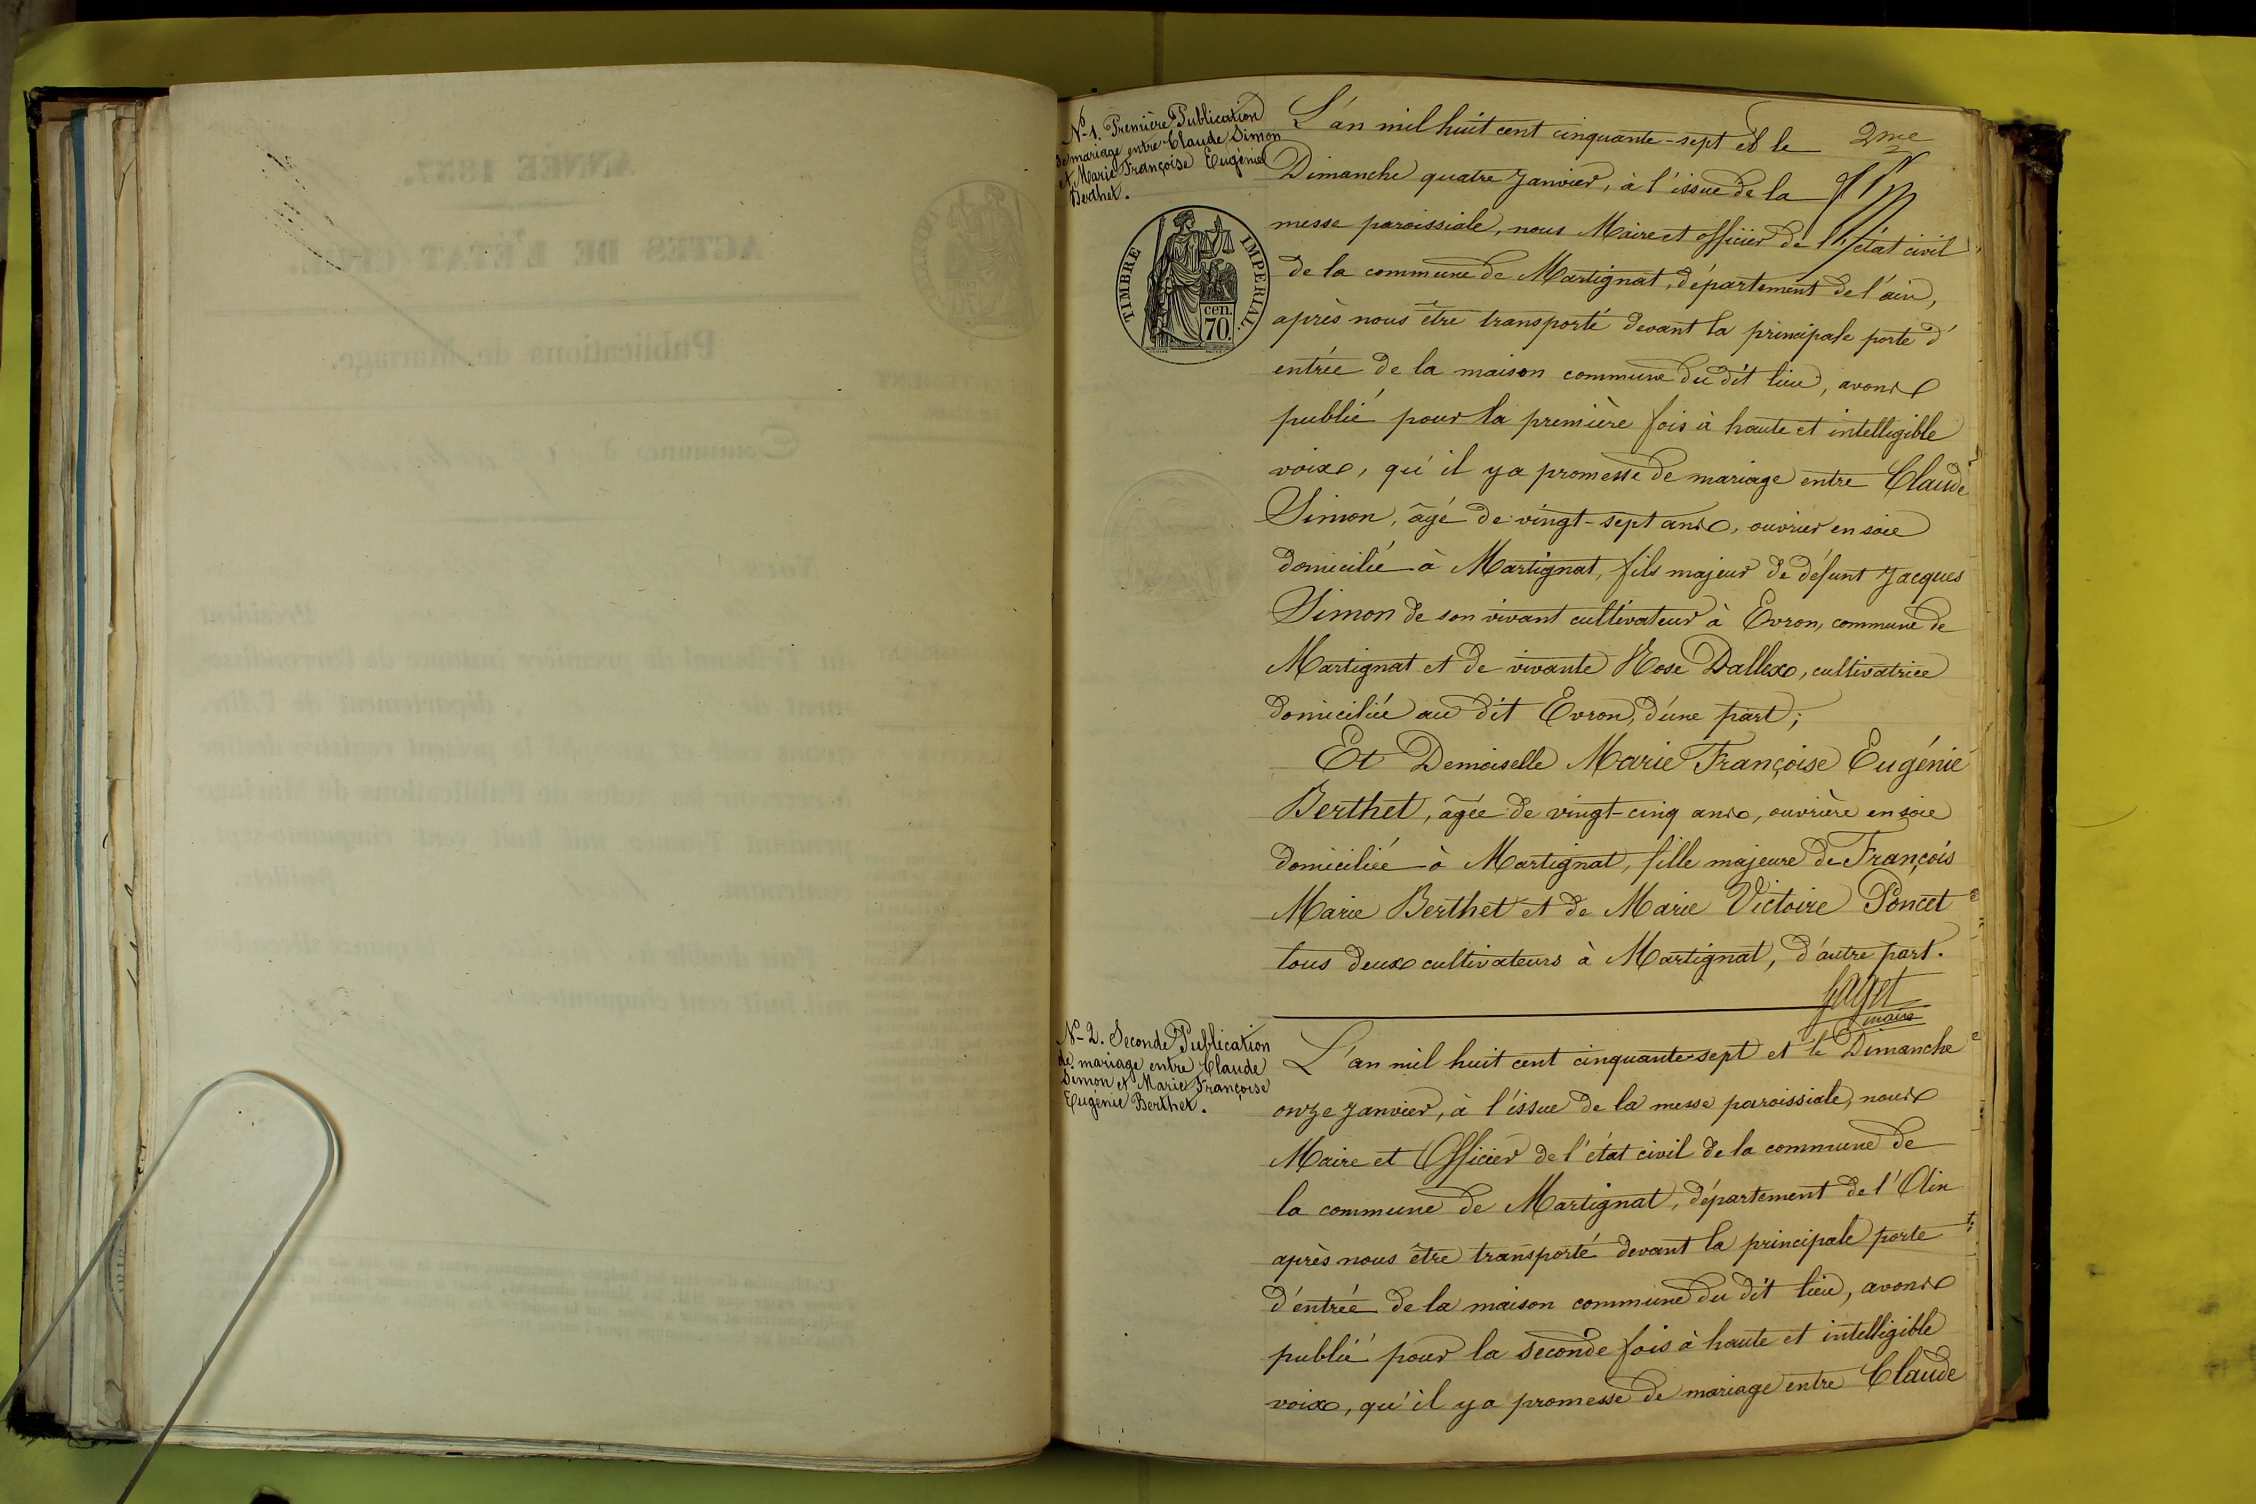 N° 1. Première Publication
de mariage entre Claude Simon
et Marie Françoise Eugénie
Berthet.
TIMBRE IMPERIAL.
cen.
70.
2me
L'an mil huit cent cinquante-sept et le
Dimanche quatre Janvier, à l'issue de la
messe paroissiale, nous Maire et officier de l'état civil
de la commune de Martignat, département de l'ain,
après nous être transporté devant la principale porte d'
entrée de la maison commune du dit lieu, avons
publié pour la première fois à haute et intelligible
voix, qu'il y a promesse de mariage entre Claude
Simon, âgé de vingt-sept ans, ouvrier en soie
domicilié à Martignat, fils majeur de défunt Jacques
Simon de son vivant cultivateur à Evron, commune de
Martignat et de vivante Rose Dallex, cultivatrice
domiciliée au dit Evron, d'une part;
Et Demoiselle Marie Françoise Eugénie
Berthet, âgée de vingt-cinq ans, ouvrière en soie
domiciliée à Martignat, fille majeure de François
Marie Berthet et de Marie Victoire Poncet
tous deux cultivateurs à Martignat, d'autre part.
maire
N° 2. Seconde Publication
de mariage entre Claude
Simon et Marie Françoise
Eugénie Berthet.
L'an mil huit cent cinquante-sept et le Dimanche
onze Janvier, à l'issue de la messe paroissiale, nous
Maire et Officier de l'état civil de la commune de
la commune de Martignat, département de l'Ain
après nous être transporté devant la principale porte
d'entrée de la maison commune du dit lieu, avons
publié pour la seconde fois à haute et intelligible
voix, qu'il y a promesse de mariage entre Claude